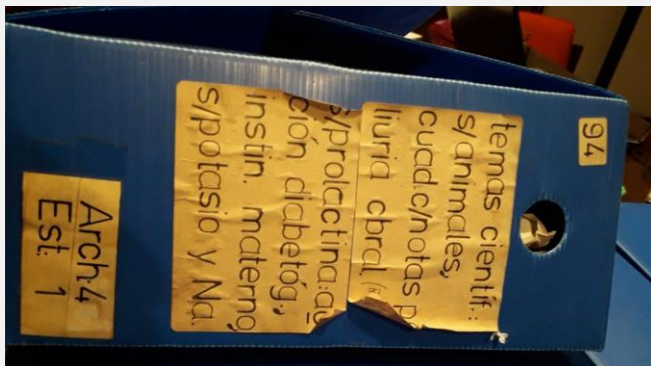 94
temas científ.:
s/animales,
cuad.c/notas po
liuria cbral.
s/prolactina:
ción diabetóg.,
instin. materno,
s/potasio y Na.
Arch.4
Est. 1